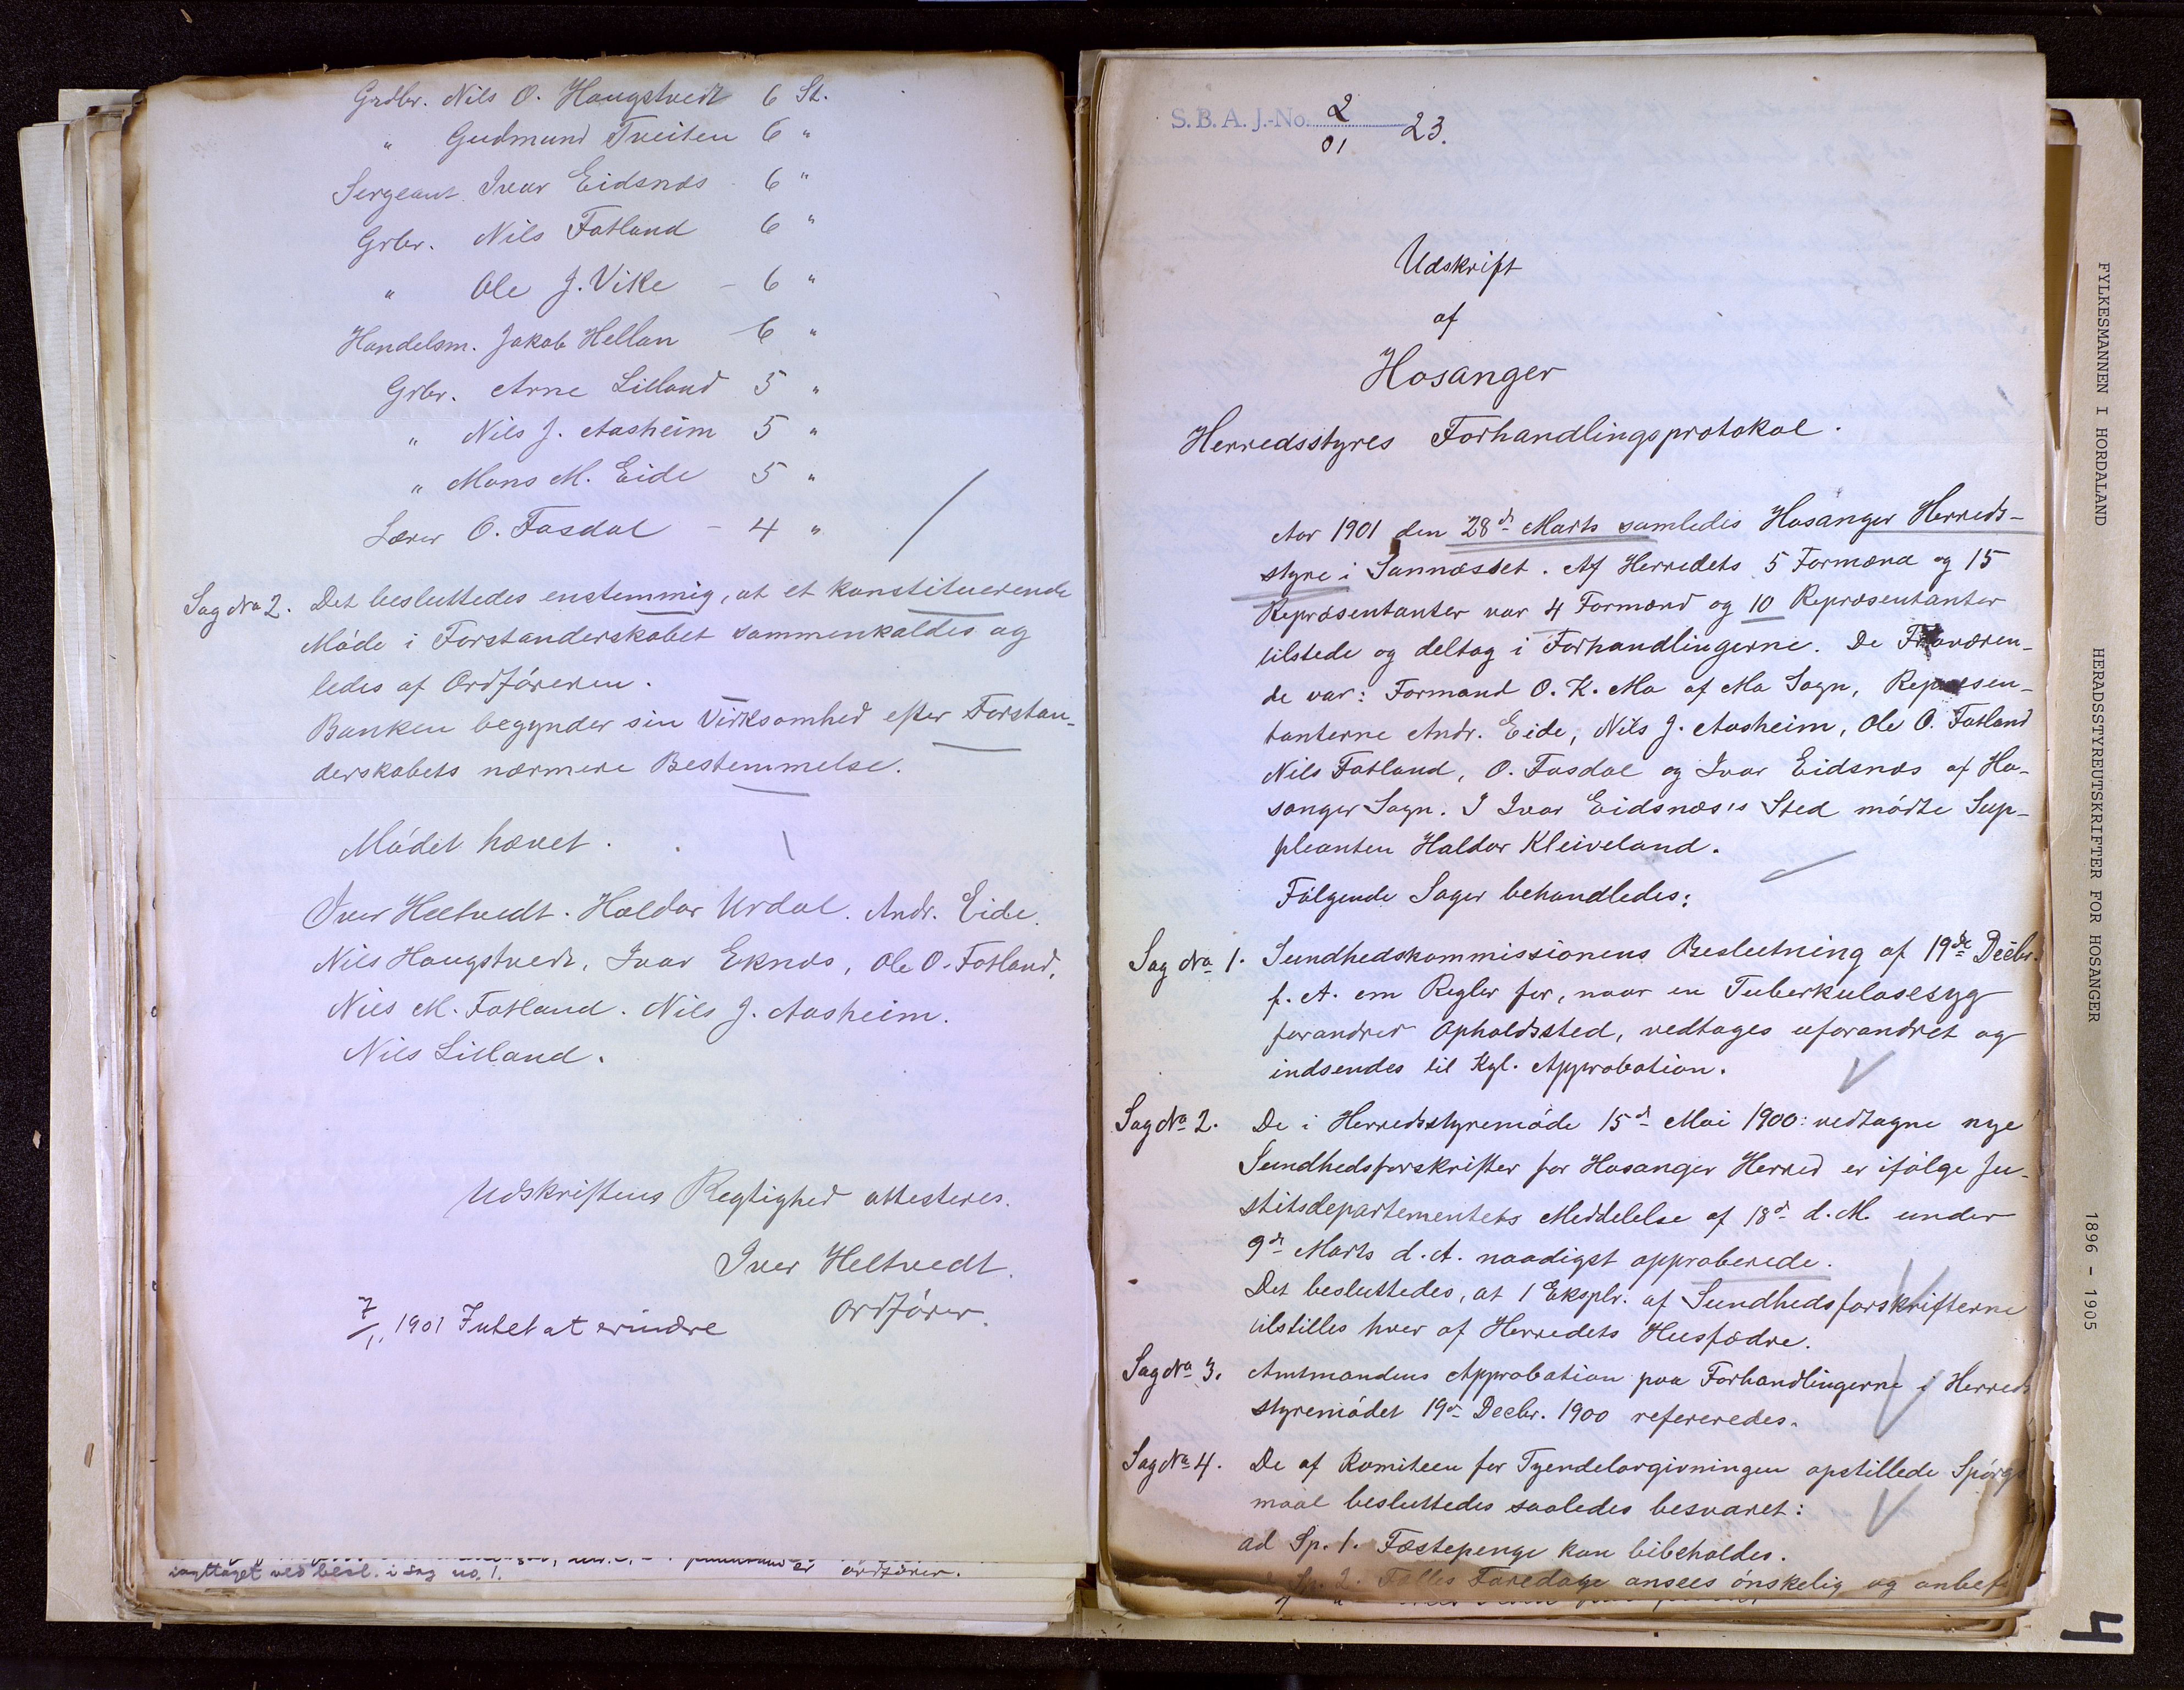 Grdbr. Nils O. Haugstvedt 6 St.
" Gudmund Tveiten 6 "
Sergeant Ivar Eidsnæs - 6 "
Grbr. Nils Fatland 6 "
" Ole J. Vike - 6 "
Handelsm. Jakob Hellan 6 "
Grbr. Arne Lilland 5 "
" Nils J. Aasheim 5 "
" Mons M. Eide 5 "
Lærer O. Fasdal - 4 "
Sag No 2. Det besluttedes enstemmig, at et konstituerende
Møde i Forstanderskabet sammenkaldes og
ledes af Ordføreren.
Banken begynder sin Virksomhed efter Forstan-
derskabets nærmere Bestemmelse.
Mødet hævet.
Iver Heltvedt. Haldor Urdal. Andr. Eide.
Nils Haugstvedt, Ivar Eknæs, Ole O. Fatland,
Nils M. Fatland. Nils J. Aasheim.
Nils Lilland.
Udskriftens Rigtighed attesteres.
Iver Heltvedt.
Ordfører.
7/1, 1901 Intet at erindre
iagttaget ved besl. i sag no. 1.
ordfører.
S. B. A. J.-No. 2/01 23.
Udskrift
af
Hosanger
Herredsstyres Forhandlingsprotokol.
Aar 1901 den 28de Marts samledes Hosanger Herreds-
styre i Sannæsset. Af Herredets 5 Formænd og 15
Repræsentanter var 4 Formænd og 10 Repræsentanter
tilstede og deltog i Forhandlingerne. De Fraværen-
de var: Formand O. K. Mo af Mo Sogn, Repræsen-
tanterne Andr. Eide, Nils J. Aasheim, Ole O. Fatland
Nils Fatland, O. Fasdal og Ivar Eidsnæs af Ho-
sanger Sogn. I Ivar Eidsnæs's Sted mødte Sup-
pleanten Haldor Kleiveland.
Følgende Sager behandledes:
Sag No 1. Sundhedskommissionens Beslutning af 19de Decbr.
f. A. om Regler for, naar en Tuberkulosesyg
forandrer Opholdssted, vedtages uforandret og
indsendes til Kgl. Approbation.
Sag No 2. De i Herredsstyremøde 15de Mai 1900 vedtagne nye
Sundhedsforskrifter for Hosanger Herred er ifølge Ju-
stitsdepartementets Meddelelse af 18de d. M. under
9de Marts d. A. naadigst approberede.
Det besluttedes, at 1 Eksplr. af Sundhedsforskrifterne
tilstilles hver af Herredets Husfædre.
Sag No 3. Amtmandens Approbation paa Forhandlingerne i Herreds
styremødet 19de Decbr. 1900 refereredes.
Sag No 4. De af Komiteen for Tyendelovgivningen opstillede Spørgs
maal besluttedes saaledes besvaret:
ad Sp. 1. Fæstepenge kan bibeholdes.
" Sp. 2. Fælles Faredage ansees ønskelig og anbef
FYLKESMANNEN I HORDALAND
HERADSSTYREUTSKRIFTER FOR HOSANGER
1896 - 1905
4